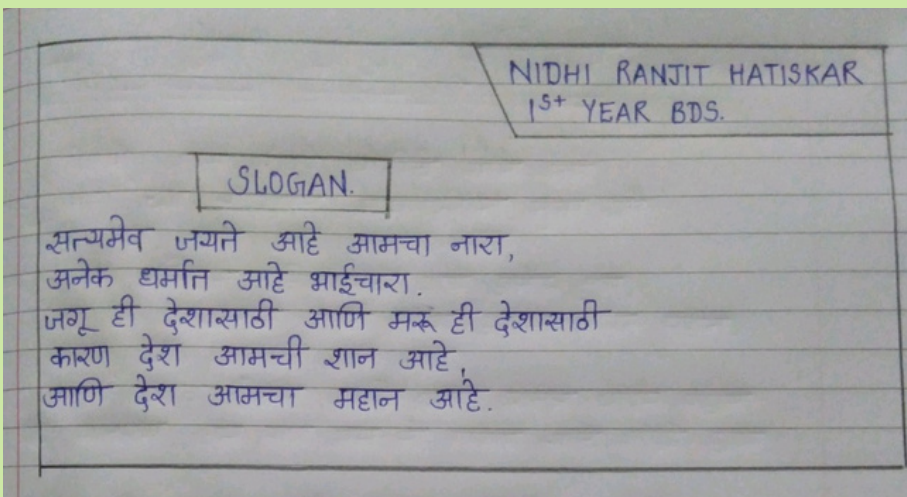 NIDHI RANJIT HATISKAR
1st YEAR BDS.
SLOGAN.
सत्यमेव जयते आहे आमचा नारा,
अनेक धर्मात आहे भाईचारा.
जगू ही देशासाठी आणि मरू ही देशासाठी
कारण देश आमची शान आहे,
आणि देश आमचा महान आहे.